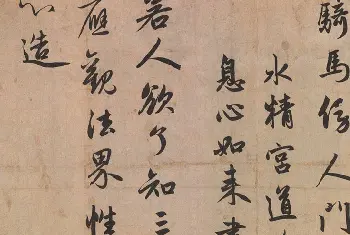 騎馬傍人門
水精宮道
息心如来書
若人欲了知三
應觀法界性
造